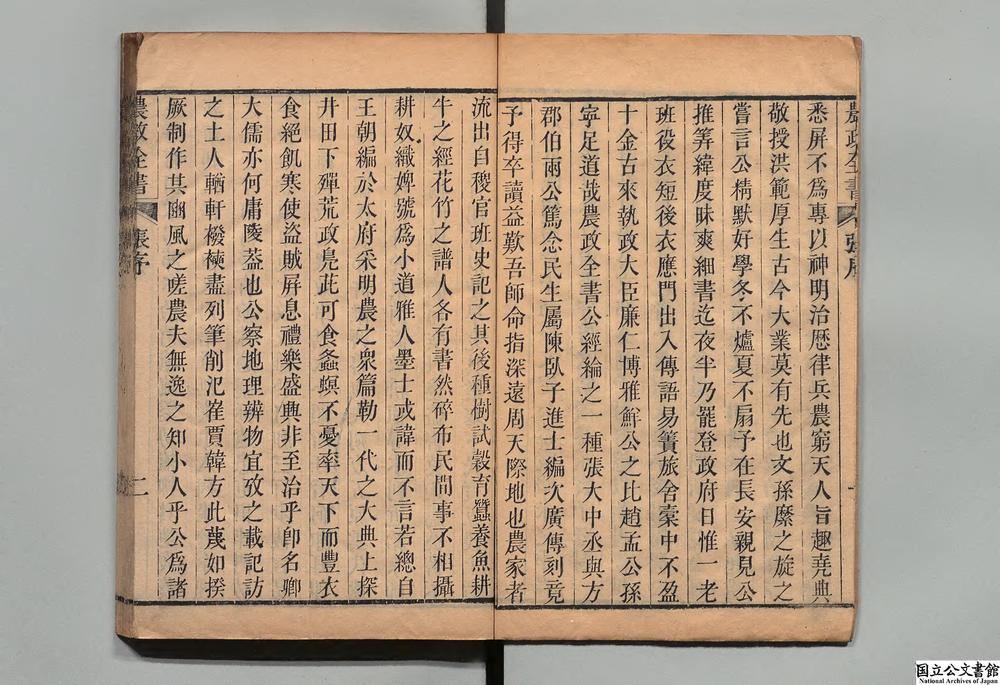 農政全書
張序
一
悉屏不爲專以神明治曆律兵農窮天人旨趣堯典
敬授洪範厚生古今大業莫有先也文孫縻之旋之
嘗言公精默好學冬不爐夏不扇予在長安親見公
推筭緯度昧爽細書迄夜半乃罷登政府日惟一老
班役衣短後衣應門出入傳語易簀旅舍橐中不盈
十金古來執政大臣廉仁博雅鮮公之比趙孟公孫
寧足道哉農政全書公經綸之一種張大中丞與方
郡伯兩公篤念民生屬陳臥子進士編次廣傳刻竟
予得卒讀益歎吾師命指深遠周天際地也農家者
流出自稷官班史記之其後種樹試穀育蠶養魚耕
牛之經花竹之譜人各有書然碎布民間事不相攝
耕奴織婢號爲小道雅人墨士或諱而不言若總自
王朝編於太府采明農之衆篇勒一代之大典上探
井田下殫荒政鳧茈可食螽螟不憂率天下而豐衣
食絕飢寒使盜賊屏息禮樂盛興非至治乎卽名卿
大儒亦何庸陵葢也公察地理辨物宜攷之載記訪
之土人輶軒襏襫盡列筆削氾崔賈韓方此蔑如揆
厥制作其豳風之嗟農夫無逸之知小人乎公爲諸
農政全書
張序
二
国立公文書館
National Archives of Japan